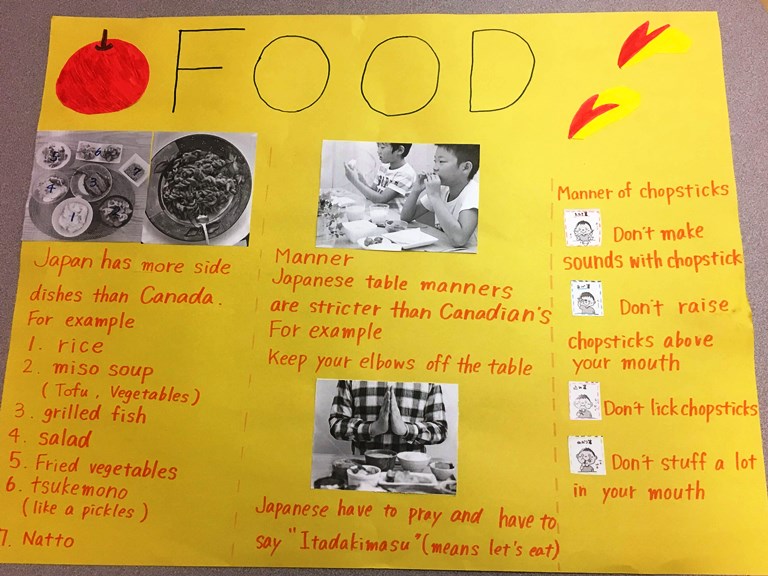 FOOD
Japan has more side
dishes than Canada.
For example
1. rice
2. miso soup
(Tofu, Vegetables)
3. grilled fish
4. salad
5. Fried vegetables
6. tsukemono
(like a pickles)
7. Natto
Manner
Japanese table manners
are stricter than Canadian's
For example
Keep your elbows off the table
Japanese have to pray and have to
say "Itadakimasu" (means let's eat)
Manner of chopsticks
Don't make
sounds with chopstick
Don't raise
chopsticks above
your mouth
Don't lick chopsticks
Don't stuff a lot
in your mouth